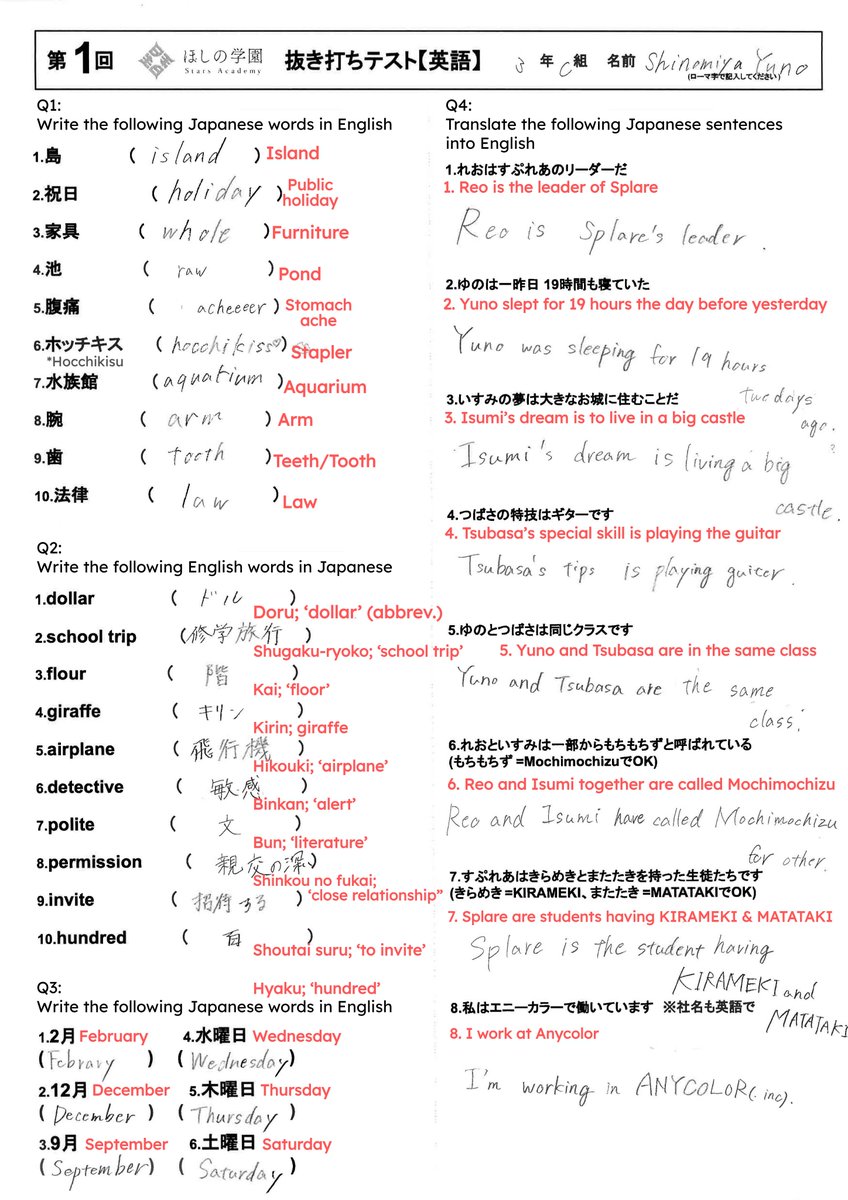 第1回 ほしの学園 Stars Academy 抜き打ちテスト【英語】 3年C組 名前 Shinomiya Yuno
(ローマ字で記入してください)
Q1:
Write the following Japanese words in English
1.島 ( island ) Island
2.祝日 ( holiday ) Public holiday
3.家具 ( whole ) Furniture
4.池 ( raw ) Pond
5.腹痛 ( acheeeer ) Stomach ache
6.ホッチキス ( hocchikiss♡ ) Stapler
*Hocchikisu
7.水族館 ( aquarium ) Aquarium
8.腕 ( arm ) Arm
9.歯 ( tooth ) Teeth/Tooth
10.法律 ( law ) Law
Q2:
Write the following English words in Japanese
1.dollar ( ドル )
Doru; ‘dollar’ (abbrev.)
2.school trip (修学旅行 )
Shugaku-ryoko; ‘school trip’
3.flour ( 階 )
Kai; ‘floor’
4.giraffe ( キリン )
Kirin; giraffe
5.airplane ( 飛行機 )
Hikouki; ‘airplane’
6.detective ( 敏感 )
Binkan; ‘alert’
7.polite ( 文 )
Bun; ‘literature’
8.permission ( 親交の深い)
Shinkou no fukai;
‘close relationship”
9.invite ( 招待する )
Shoutai suru; ‘to invite’
10.hundred ( 百 )
Hyaku; ‘hundred’
Q3:
Write the following Japanese words in English
1.2月 February
( Febrary )
2.12月 December
( December )
3.9月 September
( September)
4.水曜日 Wednesday
( Wednesday)
5.木曜日 Thursday
( Thursday )
6.土曜日 Saturday
( Saturday )
Q4:
Translate the following Japanese sentences
into English
1.れおはすぷれあのリーダーだ
1. Reo is the leader of Splare
Reo is Splare's leader.
2.ゆのは一昨日 19時間も寝ていた
2. Yuno slept for 19 hours the day before yesterday
Yuno was sleeping for 19 hours
twe days
ago.
3.いすみの夢は大きなお城に住むことだ
3. Isumi’s dream is to live in a big castle
Isumi's dream is living a big
castle.
4.つばさの特技はギターです
4. Tsubasa’s special skill is playing the guitar
Tsubasa's tips is playing guiter.
5.ゆのとつばさは同じクラスです
5. Yuno and Tsubasa are in the same class
Yuno and Tsubasa are the same
class.
6.れおといすみは一部からもちもちずと呼ばれている
(もちもちず =MochimochizuでOK)
6. Reo and Isumi together are called Mochimochizu
Reo and Isumi have called Mochimochizu
for other.
7.すぷれあはきらめきとまたたきを持った生徒たちです
(きらめき =KIRAMEKI、またたき =MATATAKIでOK)
7. Splare are students having KIRAMEKI & MATATAKI
Splare is the student having
KIRAMEKI and
MATATAKI
8.私はエニーカラーで働いています ※社名も英語で
8. I work at Anycolor
I'm working in ANYCOLOR(.inc).